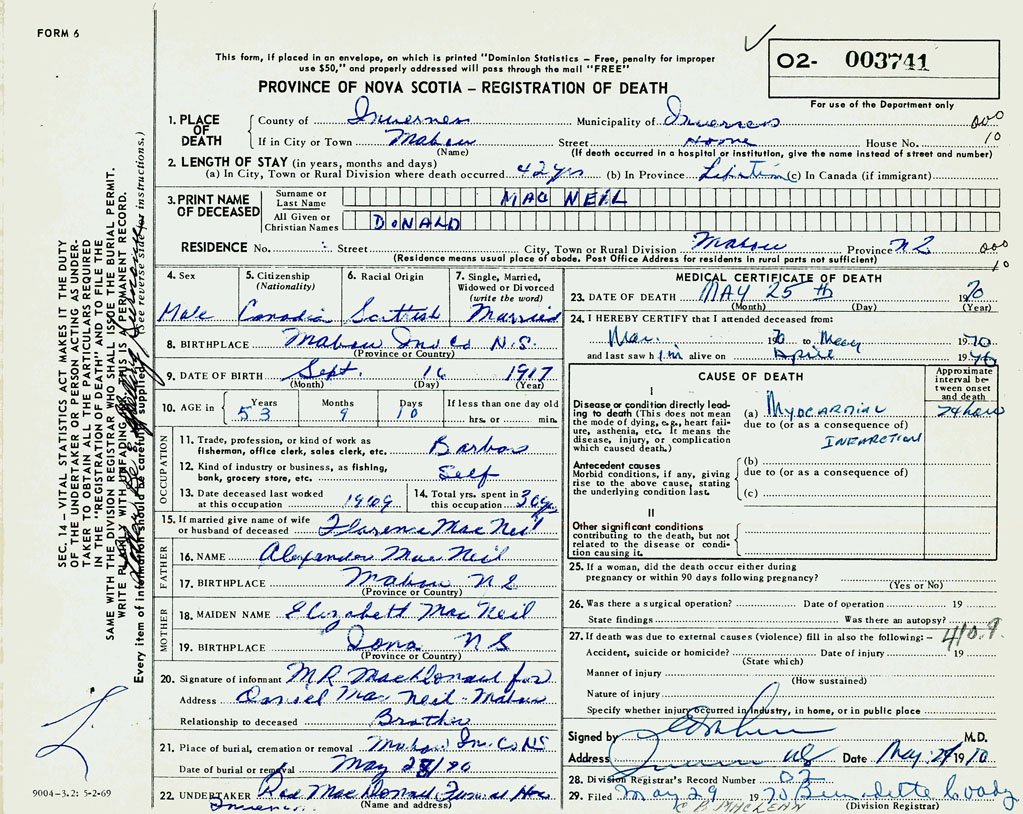 FORM 6
This form, if placed in an envelope, on which is printed "Dominion Statistics – Free, penalty for improper
use $50," and properly addressed will pass through the mail "FREE"
02- 003741
For use of the Department only
PROVINCE OF NOVA SCOTIA – REGISTRATION OF DEATH
1. PLACE OF DEATH
County of Inverness Municipality of Inverness 000
If in City or Town Mabou Street Home House No. 10
(Name) (If death occurred in a hospital or institution, give the name instead of street and number)
2. LENGTH OF STAY (in years, months and days)
(a) In City, Town or Rural Division where death occurred 42 yrs (b) In Province Lifetime (c) In Canada (if immigrant)
3. PRINT NAME OF DECEASED
Surname or Last Name MAC NEIL
All Given or Christian Names DONALD
RESIDENCE No. Street City, Town or Rural Division Mabou Province N S 000
(Residence means usual place of abode. Post Office Address for residents in rural parts not sufficient) 10
4. Sex
Male
5. Citizenship
(Nationality)
Canadian
6. Racial Origin
Scottish
7. Single, Married,
Widowed or Divorced
(write the word)
Married
8. BIRTHPLACE Mabou Inv Co N.S.
(Province or Country)
9. DATE OF BIRTH Sept. 16 1917
(Month) (Day) (Year)
10. AGE in Years Months Days If less than one day old
53 9 10 hrs. or min.
OCCUPATION
11. Trade, profession, or kind of work as
fisherman, office clerk, sales clerk, etc. Barber
12. Kind of industry or business, as fishing,
bank, grocery store, etc. Self
13. Date deceased last worked
at this occupation 1969
14. Total yrs. spent in
this occupation 30 yrs
15. If married give name of wife
or husband of deceased Florence Mac Neil
FATHER
16. NAME Alexander Mac Neil
17. BIRTHPLACE Mabou N S
(Province or Country)
MOTHER
18. MAIDEN NAME Elizabeth Mac Neil
19. BIRTHPLACE Iona N S
(Province or Country)
20. Signature of informant M R MacDonald for
Address Daniel Mac Neil Mabou
Relationship to deceased Brother
21. Place of burial, cremation or removal Mabou In. Co NS
Date of burial or removal May 28/70
22. UNDERTAKER Rod MacDonald Funeral Home
(Name and address)
Inverness
MEDICAL CERTIFICATE OF DEATH
23. DATE OF DEATH MAY 25 th 1970
(Month) (Day) (Year)
24. I HEREBY CERTIFY that I attended deceased from:
Mar. 1970 to May 1970
and last saw him alive on April 1970
CAUSE OF DEATH
Approximate
interval be-
tween onset
and death
I
Disease or condition directly lead-
ing to death (This does not mean
the mode of dying, e.g., heart fail-
ure, asthenia, etc. It means the
disease, injury, or complication
which caused death.)
(a) MYOCARDIAL 24 hours
due to (or as a consequence of)
INFARCTION
Antecedent causes
Morbid conditions, if any, giving
rise to the above cause, stating
the underlying condition last.
(b)
due to (or as a consequence of)
(c)
II
Other significant conditions
contributing to the death, but not
related to the disease or condi-
tion causing it.
25. If a woman, did the death occur either during
pregnancy or within 90 days following pregnancy?
(Yes or No)
26. Was there a surgical operation? Date of operation 19
State findings Was there an autopsy?
27. If death was due to external causes (violence) fill in also the following: – 410.9
Accident, suicide or homicide? Date of injury 19
(State which)
Manner of injury
(How sustained)
Nature of injury
Specify whether injury occurred in industry, in home, or in public place
Signed by M.D.
Address NS Date May 29 1970
28. Division Registrar's Record Number 02
29. Filed May 29 1970 Bernadette Coady
C B MACLEAN (Division Registrar)
SEC. 14 – VITAL STATISTICS ACT MAKES IT THE DUTY
OF THE UNDERTAKER OR PERSON ACTING AS UNDER-
TAKER TO OBTAIN ALL THE PARTICULARS REQUIRED
IN THE "REGISTRATION OF DEATH" AND TO FILE THE
SAME WITH THE DIVISION REGISTRAR WHO SHALL ISSUE THE BURIAL PERMIT.
WRITE PLAINLY WITH UNFADING THIS IS A PERMANENT RECORD.
Every item of information should be carefully supplied (See reverse side for instructions.)
9004-3.2: 5-2-69